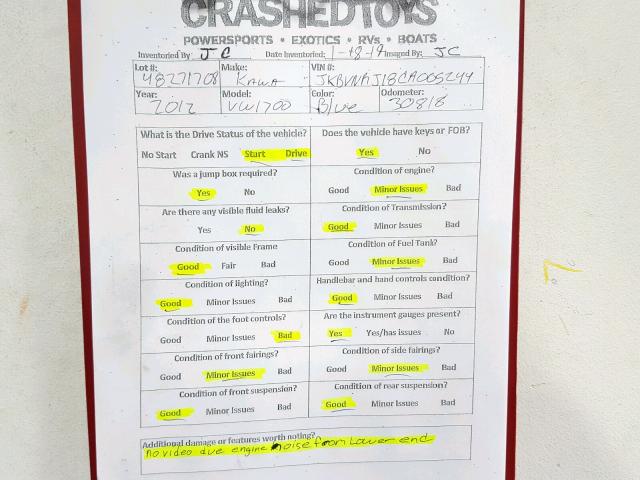 CRASHEDTOYS
POWERSPORTS • EXOTICS • RVs • BOATS
Inventoried By JC Date Inventoried: 1-18-19 Imaged By: JC
Lot #: 48271708 Make: KAWA VIN #:
Year: 2012 Model: VW1700 Color: Blue Odometer: 30818
What is the Drive Status of the vehicle? Does the vehicle have keys or FOB?
No Start Crank NS Start Drive Yes No
Was a jump box required? Condition of engine?
Yes No Good Minor Issues Bad
Are there any visible fluid leaks? Condition of Transmission?
Yes No Good Minor Issues Bad
Condition of visible Frame Condition of Fuel Tank?
Good Fair Bad Good Minor Issues Bad
Condition of lighting? Handlebar and hand controls condition?
Good Minor Issues Bad Good Minor Issues Bad
Condition of the foot controls? Are the instrument gauges present?
Good Minor Issues Bad Yes Yes/has issues No
Condition of front fairings? Condition of side fairings?
Good Minor Issues Bad Good Minor Issues Bad
Condition of front suspension? Condition of rear suspension?
Good Minor Issues Bad Good Minor Issues Bad
Additional damage or features worth noting?
no video due engine noise from Lower end